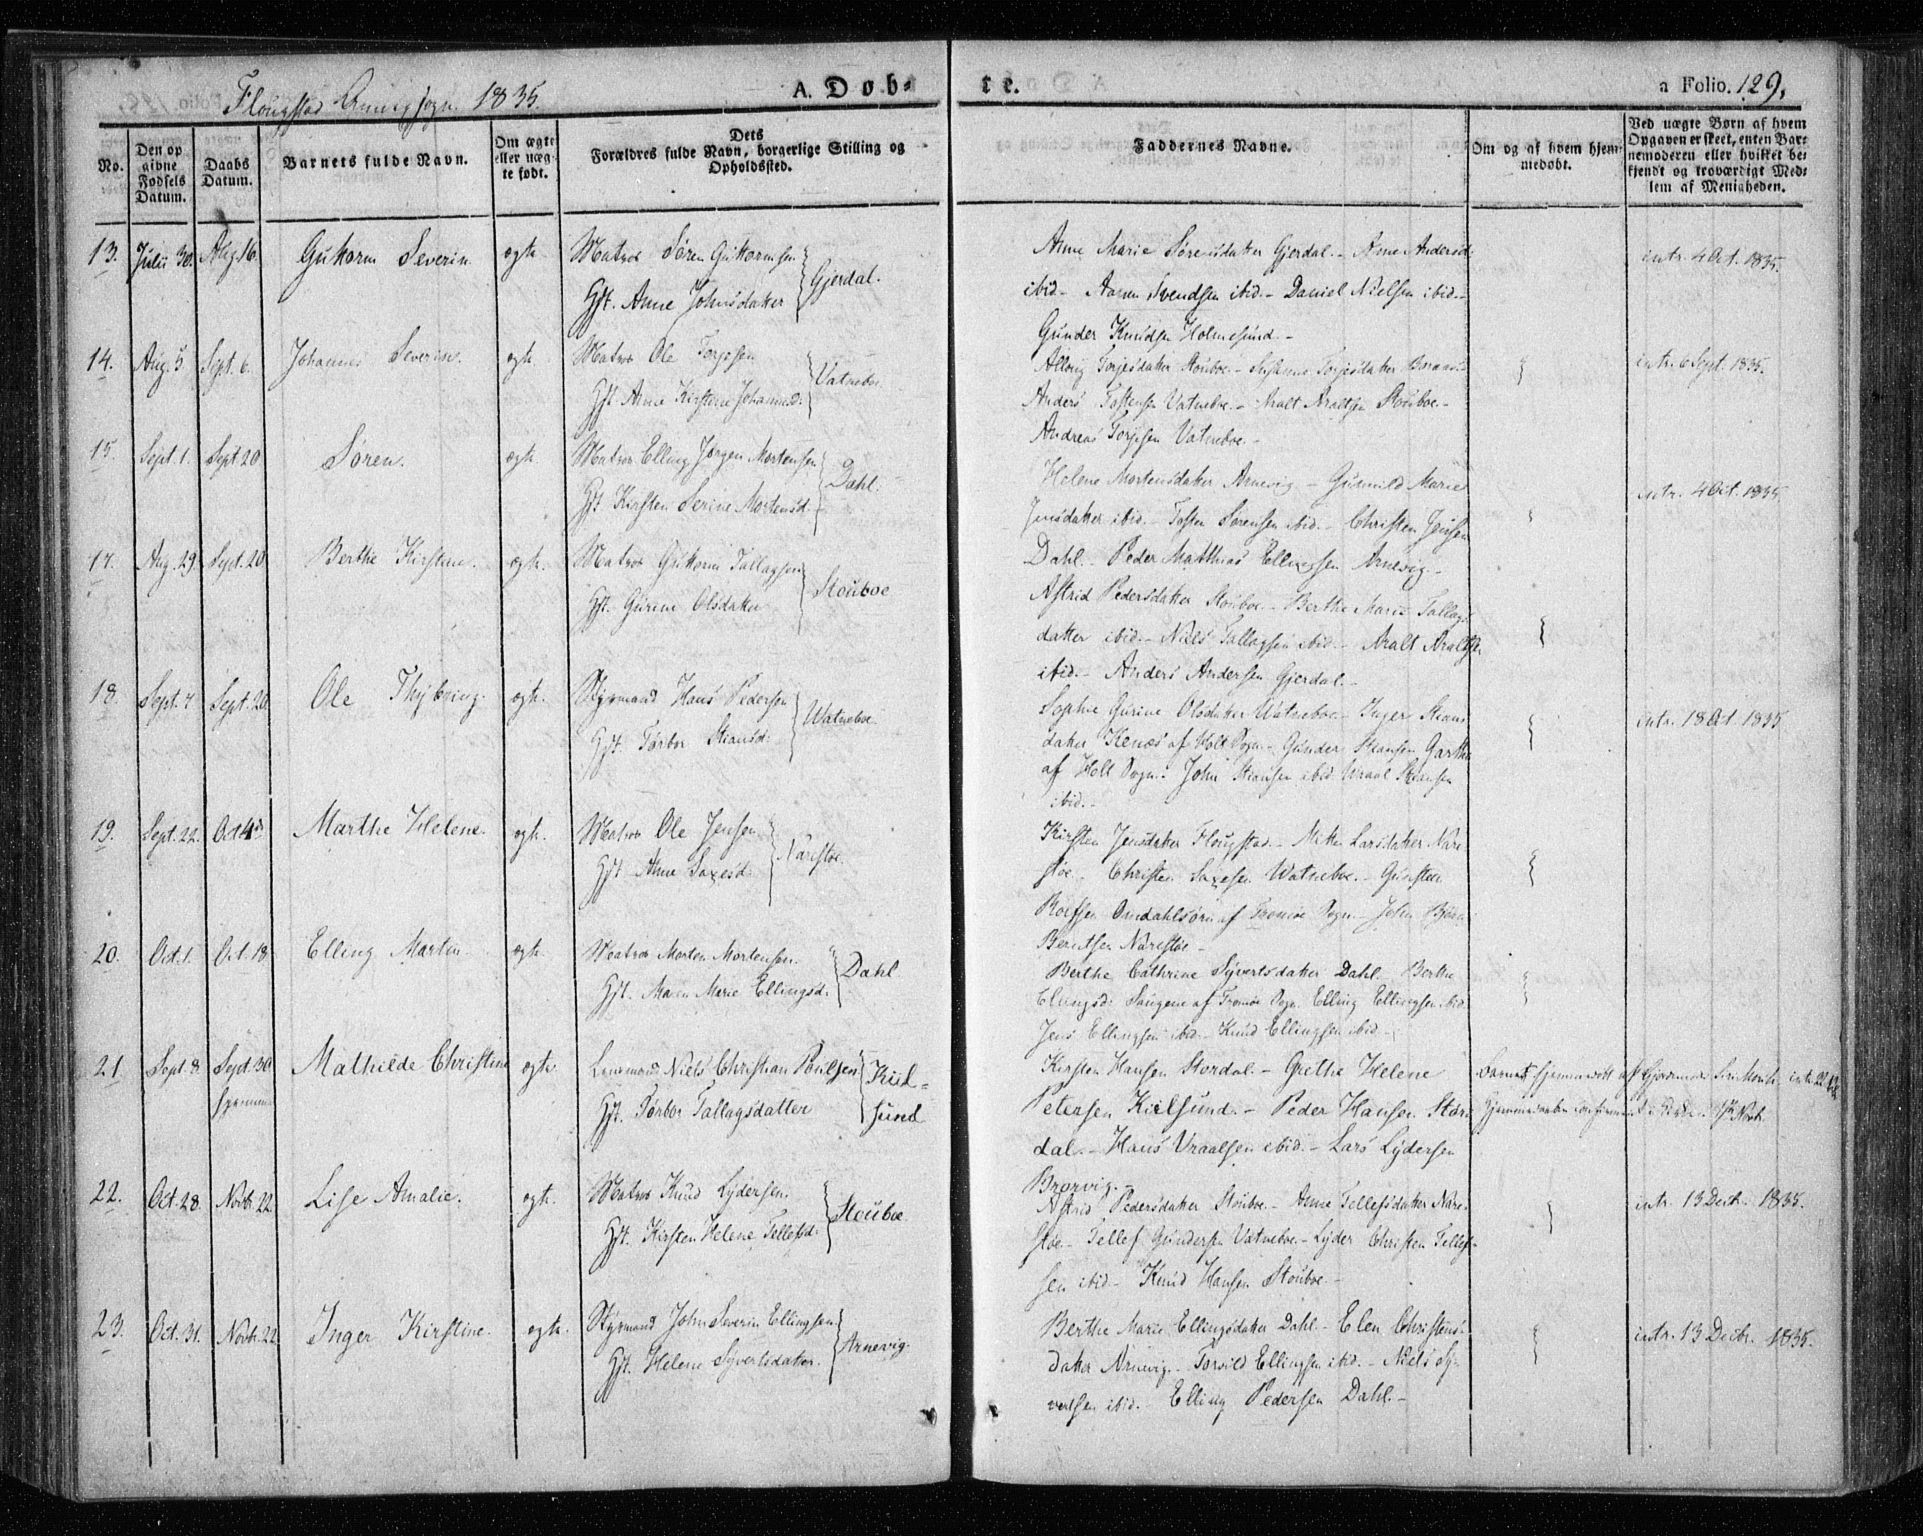 Flougstad Annexsogn 1835.
A. Døb- te.
a Folio. 129.
No.
Den opgivne Fødsels Datum.
Daabs Datum.
Barnets fulde Navn.
Om ægte eller uægte født.
Dets Forældres fulde Navn, borgerlige Stilling og Opholdssted.
Faddernes Navne.
Om og af hvem hjemmedøbt.
Ved uægte Børn af hvem Opgaven er skeet, enten Barnemoderen eller hvilket bekjendt og troværdigt Medlem af Menigheden.
13. Julii 30. Aug. 16. Guttorm Severin ægte. Matros Søren Guttormsen
Hst. Anne Johnsdatter } Gjerdal.
Anne Marie Sørensdatter Gjerdal. - Anne Andersd:
ibid - Aanen Svendsen ibid. - Daniel Nielsen ibid. -
Gunder Knudsen Holmesund. -
intr. 4 Oct. 1835.
14. Aug. 5. Sept. 6. Johannes Severin. ægte. Matros Ole Torjesen
Hst. Anne Kirstine Johannesd: } Vatneboe
Torjesdatter Stouboe. - Torjesdatter
Anders Tostensen Vatneboe. - Aralt Araltsen Stouboe. -
Andreas Torjesen Vatneboe. -
intr. 6 Sept. 1835.
15. Sept. 1. Sept. 20 Søren. ægte. Matros Elling Jørgen Mortensen
Hst. Kirsten Serine Mortensd. } Dahl.
Helene Mortensdatter Arnevig. - Gunnild Marie
Jensdatter ibid. - Tosten Sørensen ibid. - Christen Jensen
Dahl. - Peder Matthias Ellingsen Arnevig. -
intr. 4 Oct. 1835.
17. Aug. 29. Sept. 20 Berthe Kirstine. ægte. Matros Guttorm Tallagsen
Hst. Gurine Olsdatter } Stouboe
Astrid Pedersdatter Stouboe. - Berthe Marie Tallags
datter ibid. - Niels Tallagsen ibid. - Aralt Araltsen
ibid. - Anders Andersen Gjerdal. -
18. Sept. 7 Sept. 20. Ole Thybring. ægte. Styrmand Hans Pedersen
Hst. Torbor Steansd: } Watneboe.
Sophie Gurine Olsdatter Watneboe. - Inger Steans
datter Kenæs af Holt Sogn - Gunder Steansen Garthe
af Holt Sogn. John Steansen ibid. Wraal Steansen
ibid. -
intr. 18 Oct. 1835
19. Sept. 22. Oct. 4de Marthe Helene. ægte. Matros Ole Jensen
Hst. Anne Saxesd. } Narestøe.
Kirsten Jensdatter Flougstad. - Mette Larsdatter Nare
støe. - Christen Saxesen Watneboe. - Gunsten
Omdahlsøren af Tromøe Sogn - John
Berntsen Narestøe -
20. Oct. 1. Oct. 18. Elling Martin. ægte. Matros Morten Mortensen.
Hst. Maren Marie Ellingsd. } Dahl
Berthe Cathrine Syvertsdatter Dahl. Berthe
Ellingsd: af Tromøe Sogn. Elling Ellingsen ibid.
Jens Ellingsen ibid. - Knud Ellingsen ibid. -
21. Sept. 8 Sept. 30 Mathilde Christine ægte. Lensmand Niels Christian Poulsen
Hst. Torbor Tallagsdatter } Kiilsund
Kirsten Hansen Stordal. - Grethe Helene
Petersen Kiilsund. - Peder Hansen Stor
dal. - Hans Vraalsen ibid. - Lars Lydersen
Brorvig. -
Barnet hjemmedøbt af
22. Oct. 28. Novbr. 22. Lise Amalie. ægte. Matros Knud Lydersen.
Hst. Kirsten Helene Tellefsd. } Stouboe.
Astrid Pedersdatter Stouboe. - Anne Tellefsdatter Nare-
støe - Tellef Gundersen Vatneboe. - Lyder Christen Tellef-
sen ibid. - Knud Hansen Stouboe. -
intr. 13 Decbr. 1835.
23. Oct. 31. Novbr. 22. Inger Kirstine. ægte. Styrmand John Severin Ellingsen
Hst. Helene Syvertsdatter. } Arnevig.
Berthe Marie Ellingsdatter Dahl. - Elen Christens-
datter Arnevig. - Torvild Ellingsen ibid. - Niels Sy-
vertsen ibid. Elling Pedersen Dahl. -
intr. 13 Decbr. 1835.